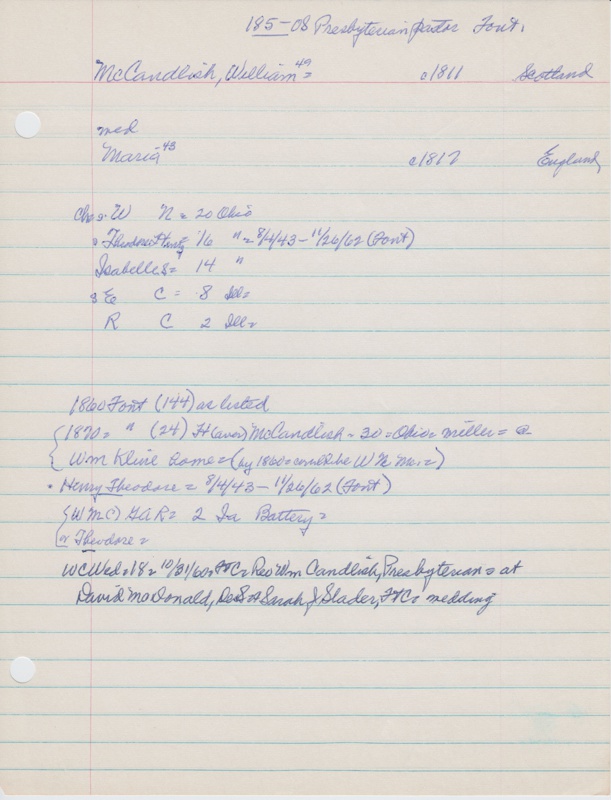 185-08 Presbyterian pastor Font.
McCandlish, William 49 = c1811 Scotland
med
Maria 43 c1817 England
Ch 2. W N = 20 Ohio
Theodore = 16 " = 8/4/43 - 11/26/62 (Font)
Isabelle S = 14 "
E C = 8 Ill =
R C 2 Ill =
1860 Font (144) as listed
1870 = " (24) McCandlish - 30 = Ohio = miller = @
Wm Kline home = (by 1860 = could be W N Mc. =)
Henry Theodore = 8/4/43 - 11/26/62 (Font)
W McC) GAR = 2 Ia Battery =
or Theodore =
WCWed = 18 = 10/31/60 = FtC = Rev Wm Candlish, Presbyterian = at
David MacDonald, Sarah J Slader, FtC = wedding